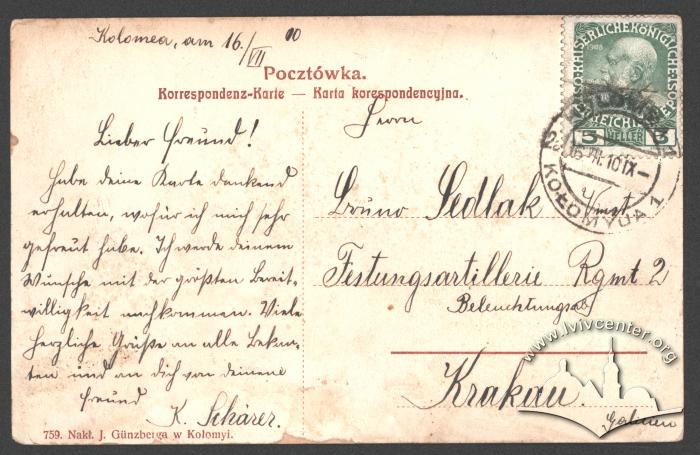 Kolomea, am 16./VII 10
Pocztówka.
Korrespondenz-Karte — Karta korespondencyjna.
Lieber Freund!
Habe deine Karte dankend
erhalten, wofür ich mich sehr
gefreut habe. Ich werde deinem
Wunsche mit der größten Bereit-
willigkeit nachkommen. Viele
herzliche Grüße an alle Bekan-
ten und an dich von deinem
Freund
K. Schärer.
759. Nakł. J. Günzberga w Kołomyi.
Herrn
Bruno Sedlak
Festungsartillerie Rgmt 2
Beleuchtungsab
Krakau.
Galizien
KAISERLICHE KÖNIGLICHE
1908
5 HELLER 5
KOŁOMYJA 1
www.lvivcenter.org